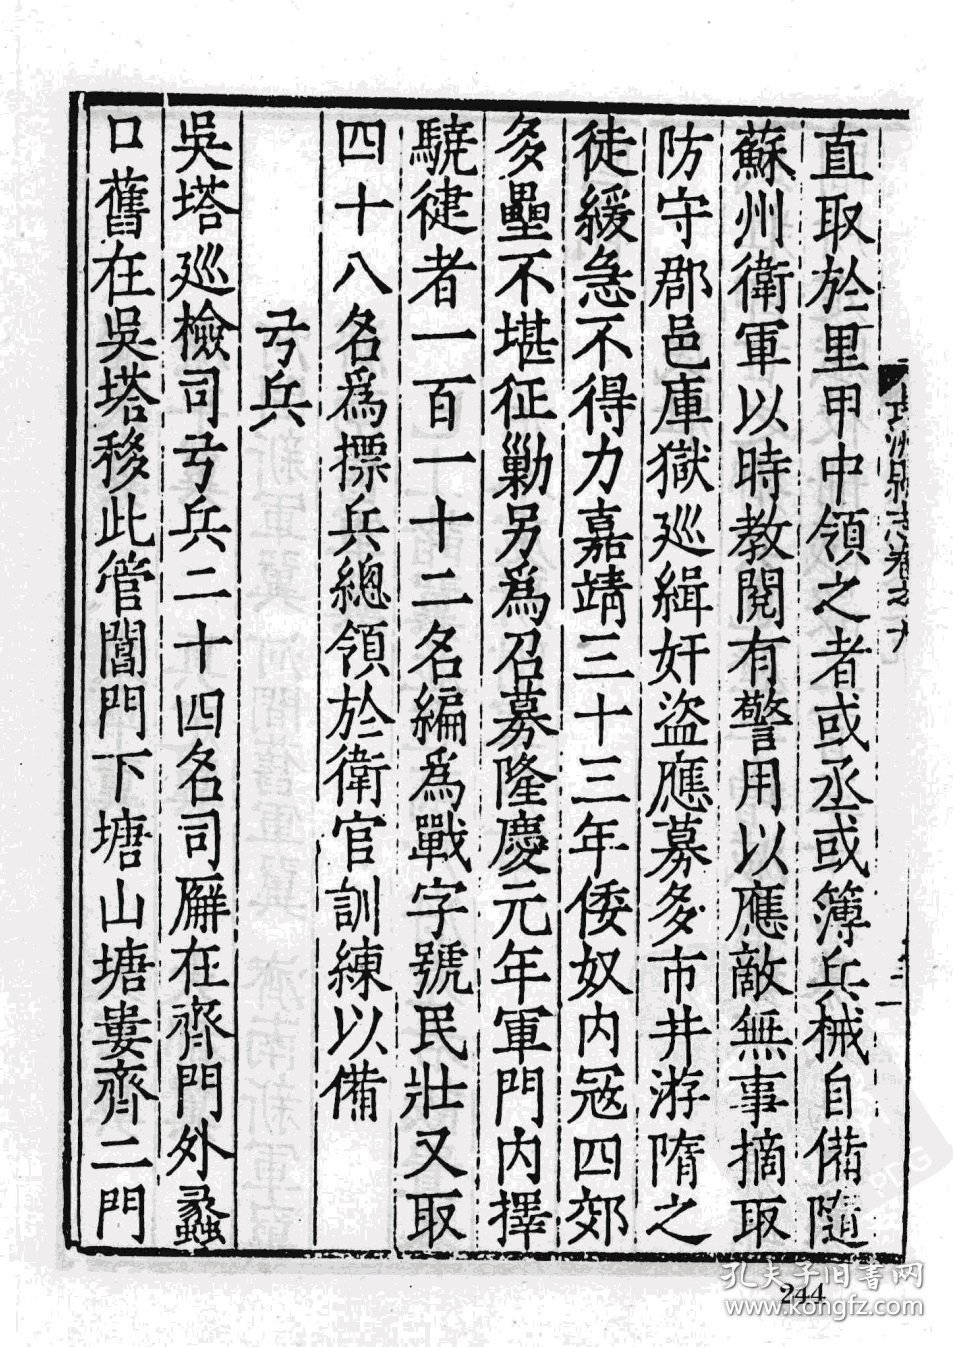 直取於里甲中領之者或丞或簿兵械自備隨
蘇州衛軍以時教閱有警用以應敵無事摘取
防守郡邑庫獄廵緝奸盜應募多市井游隋之
徒緩急不得力嘉靖三十三年倭奴内冦四郊
多壘不堪征剿另為召募隆慶元年軍門内擇
驍徤者一百一十二名編為戰字號民壯又取
四十八名為摽兵總領於衛官訓練以備
弓兵
吳塔廵檢司弓兵二十四名司廨在齊門外蠡
口舊在吳塔移此管閶門下塘山塘婁齊二門
244
孔夫子旧书网
www.kongfz.com